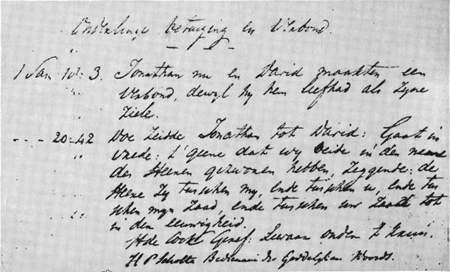 Onderlinge Betuiging en Verbond.
1 Sam. 18: 3. Jonathan nu en David maakten een
Verbond, dewyl hy hem liefhad als Zyne
Ziele.
20:42 Doe Zeidde Jonathan tot David: Gaat in
vrede: 't geene dat wy beide in den name
des Heeren gezworen hebben, Zeggende: de
Heere Zy tusschen my, ende tusschen u, ende tus
schen myn Zaad, ende tusschen uw Zaad tot
in den eeuwigheid.
onder 't Kruis.
H P Scholte Bedienaar des Goddelyken Woords.